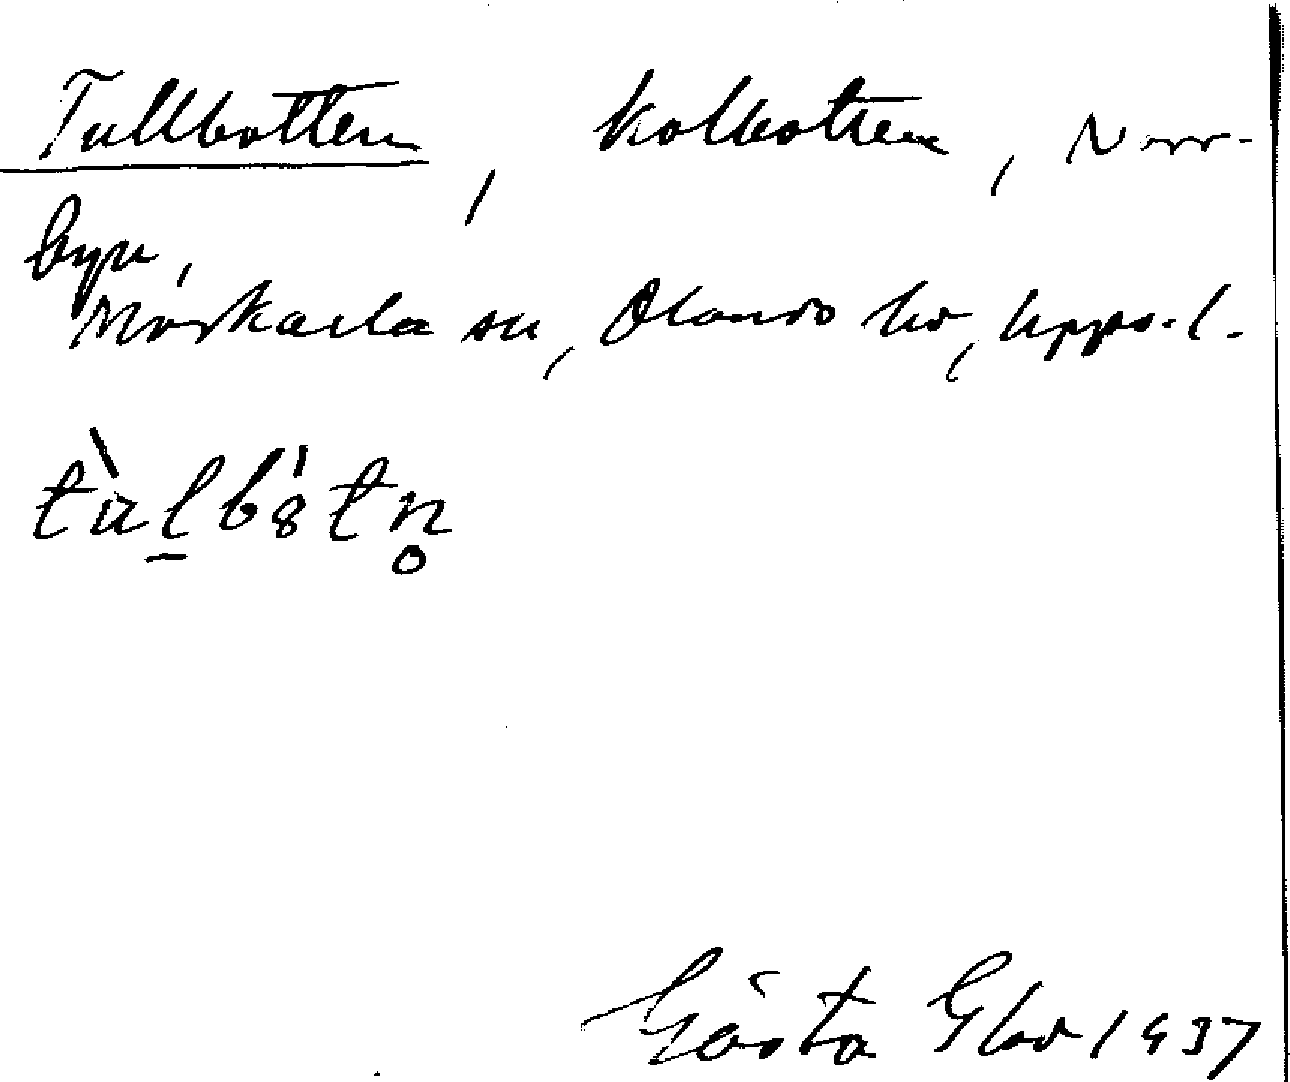 Tullbotten, kolbotten, Norr-
byn,
Morkarla sn, Olands hd, Uppsal.
tùlbötn̥
Gösta Glad 1937